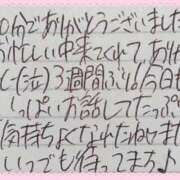 0分でありがとうございました
お忙しい中来てくれてあり
(泣)3週間ぶり!!今日も
っぱいお話してたっぷ
気持ちよくなれたね
いつでも待ってます♪